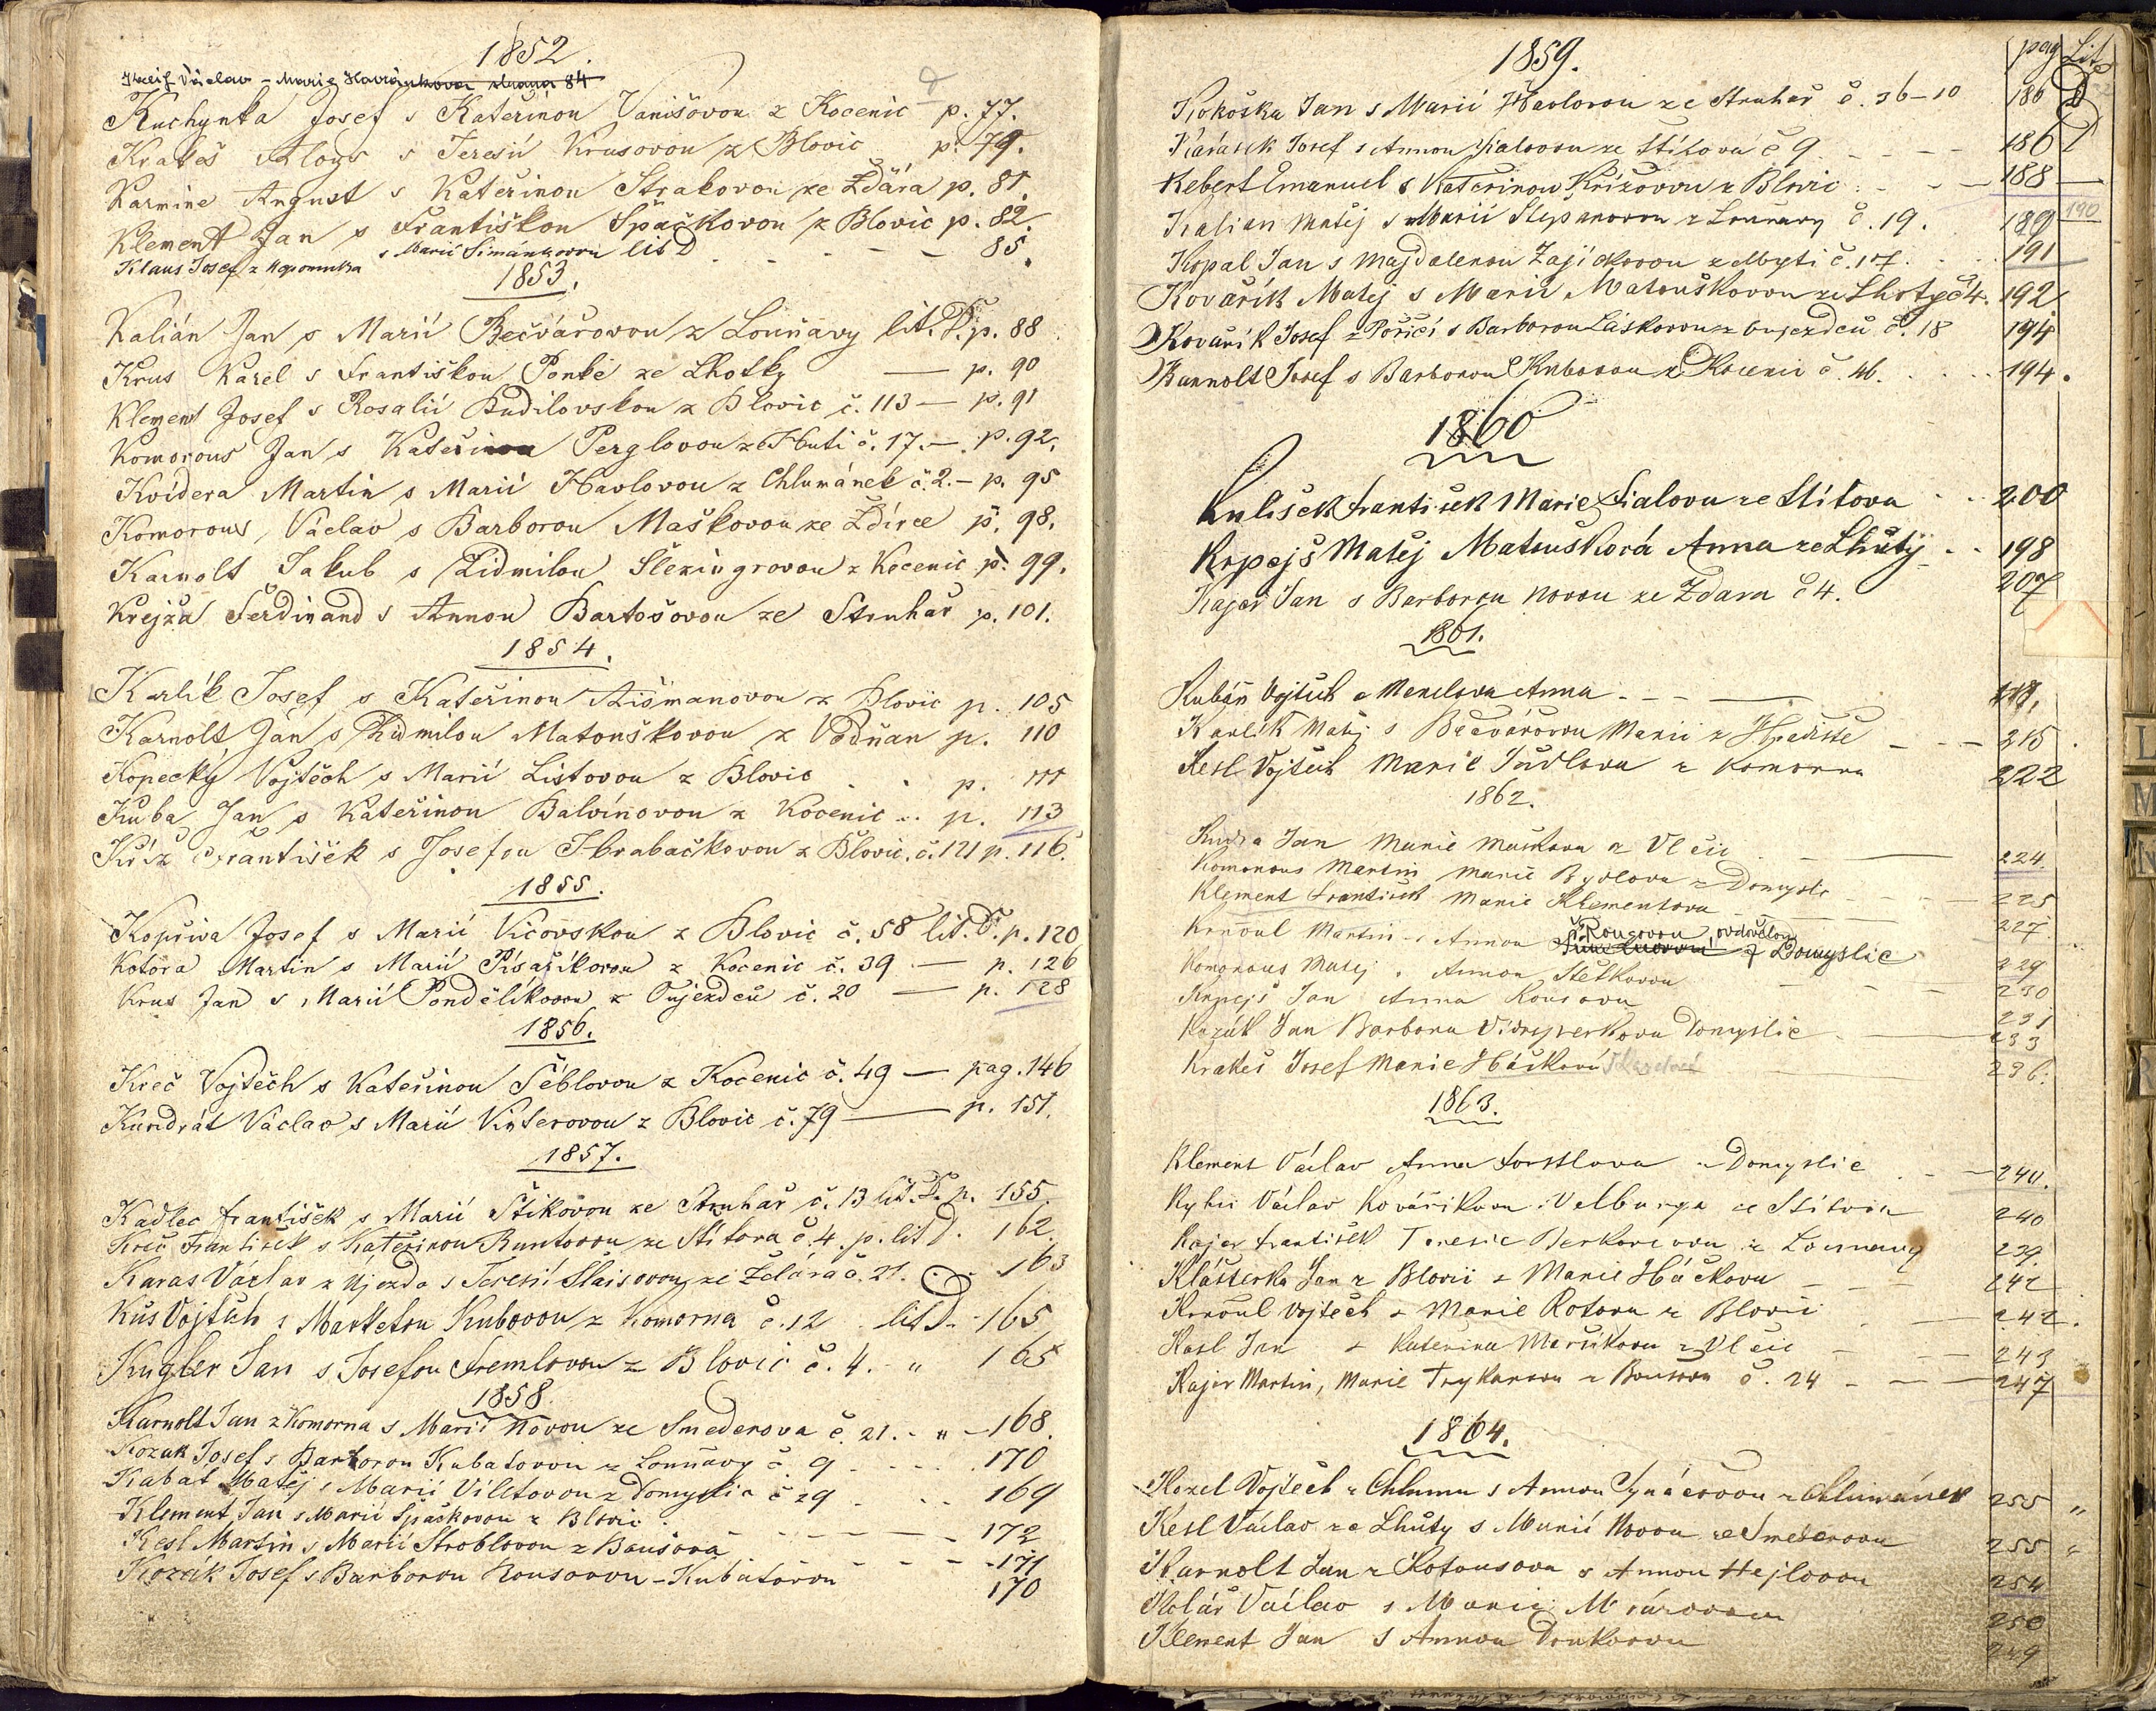 1852.
Václav – Marie 84
Kuchynka Josef s Kateřinou Vanišovou z Kocenic p. 77.
Krakeš Aloys s Teresií Krusovou z Blovic p. 79.
Karmine August s Kateřinou Strakovou ze Ždára p. 81.
Klement Jan s Františkou Špačkovou z Blovic p. 82.
Klaus Josef z s Marií Šimánkovou lit D - - - - 85.
1853.
Kalián Jan s Marií Bečvářovou z Louňavy lit. D. p. 88
Krus Karel s Františkou Ponké ze Lhotky — p. 90
Klement Josef s Rosalií Budilovskou z Blovic č. 113 — p. 91
Komorous Jan s Kateřinou Perglovou z Huti č. 17. — p. 92.
Kvídera Martin s Marií Havlovou z Chlumánek č. 2. – p. 95
Komorous, Václav s Barborou Maškovou ze Ždírce p. 98.
Karnolt Jakub s Lidmilou Šlezingrovou z Kocenic p. 99.
Krejža Ferdinand s Annou Bartošovou ze Struhař p. 101.
1854.
Karlík Josef s Kateřinou Aišmanovou z Blovic p. 105
Karnolt Ján s Lidmilou Matouškovou z Vodňan p. 110
Kopecký Vojtěch s Marií Listovou z Blovic p. 111
Kuba Jan s Kateřinou Balvínovou z Kocenic .. p. 113
Kříž František s Josefou Hrabačkovou z Blovic. č. 121 p. 116.
1855.
Kopřiwa Josef s Marií Vicovskou z Blovic č. 58 lit. D. p. 120
Kotora Martin s Marií Písaříkovou z Kocenic č. 39 — p. 126
Krus Jan s Marií Pondělíkovou z Oujezdců č. 20 — p. 128
1856.
Kreč Vojtěch s Kateřinou Šéblovou z Kocenic č. 49 — pag. 146
Kundrát Václav s Marií Vinterovou z Blovic č. 79 — p. 151.
1857.
Kadlec František s Marií Štikovou ze Struhař č. 13 lit. D. p. 155.
Kreč František s Kateřinou Runtovou ze Štítova č. 4. p. lit D. 162.
Karas Václav z Újezda s Teresií Slaisovou ze Ždára č. 21. 163
Kůs Vojtěch s Marketou Kubovou z Komorna č. 12 lit D. - 165
Kugler Jan s Josefou Fremlovou z Blovic č. 4. - " 165
1858.
Karnolt Jan z Komorna s Marií Novou ze Smederova č. 21. - " - 168.
Kozak Josef s Barborou Kubatovou z Louňavy č. 9 - - - - 170
Kabát Matěj s Marií Viletovou z Domyslic č 29 - - - 169
Klement Jan s Marií Špačkovou z Blovic
Kesl Martin s Marií Stroblovou z Bousova - - - - - 172
Kozák Josef s Barborou Rousovou – Kubátovou - - - - 171
170
1859.
pag Lit
Kokoška Jan s Marií Havlovou ze Struhař č. 36–10 186 D
Josef s Annou Fialovou ze Štítova č 9 - - - - 186
Kebert Emanuel s Kateřinou Křížovou z Blovic - - 188
Kalian Matěj s Marií Štepanovou z Louňavy č. 19. 189 190
Kopal Jan s Magdalenou Zajíčkovou z Mytí č. 17. 191
Kovařík Matěj s Marií Matouškovou ze Lhoty č 4. 192
Kovařík Josef z Poříčí s Barborou Láskovou z Oujezdců č. 18 194
Karnolt Josef s Barborou Kubovou z Kocenic č. 46. 194.
1860
Kulišek František Marie Fialova ze Štítova 200
Krpejš Matěj Matoušková Anna ze Lhůty - - 198
Kajer Jan s Barborou Novou ze Ždara č 4. 207
1861.
Kubáň Vojtěch s Menclova Anna - - -
Karlík Matěj s Bečvárovou Marií z Hradiště - - 215
Kesl Vojtěch Marie Šúdlova z Komorna 222
1862.
Jan Marie Maškova z Vlčic 224.
Komorous Martin Marie Bydlova z Domyslic 225
Klement František Marie Klementova 227
Krnoul Martin s Annou Rousovou, ovdovělou z Domyslic
Komorous Matěj s Annou Šteškovou 229
Krpejš Jan Anna Rousova 230
Kozák Jan Barbora Domyslic 231
233
Krakeš Josef Marie Háčkova 236.
1863.
Klement Václav Anna Forstlova z Domyslic 240.
Václav Kovářikova Velburga ze Štítova 240
Kajer František Teresie z Louňavy 239.
Klášterka Jan z Blovic s Marie Háčkova - - 242
Krnoul Vojtěch s Marie Kotora z Blovic - 242.
Kasl Jan s Kateřina Maršíkova z Vlčic - - 243
Kajer Martin, Marie Trykarova z Bousova č. 24 - - - 247
1864.
Kozel Vojtěch z Chlumu s Annou z Chlumánek 255 "
Kesl Václav ze Lhůty s Marií Novou ze Smederova 255 "
Karnolt Jan z Kotousova s Annou Hejlovou 254
Kolář Václav s Marií 250
Klement Jan s Annou Doukovou 249